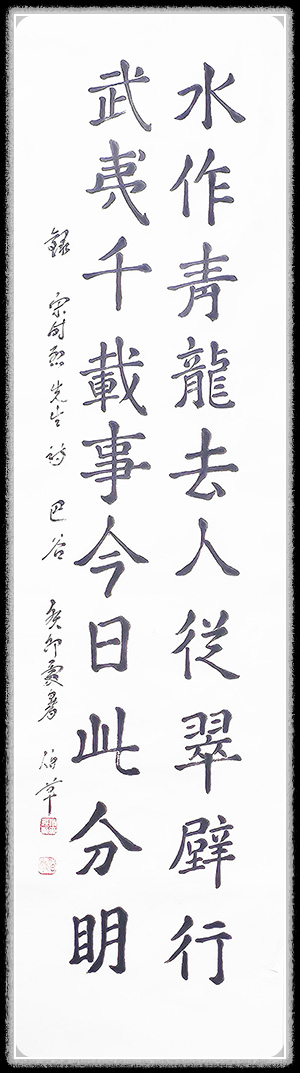 水作青龍去人從翠壁行
武夷千載事今日此分明
錄 宋時烈先生詩 巴谷 癸卯